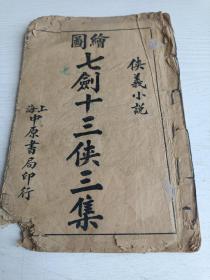 繪圖
俠義小說
七劍十三俠三集
上海中原書局印行